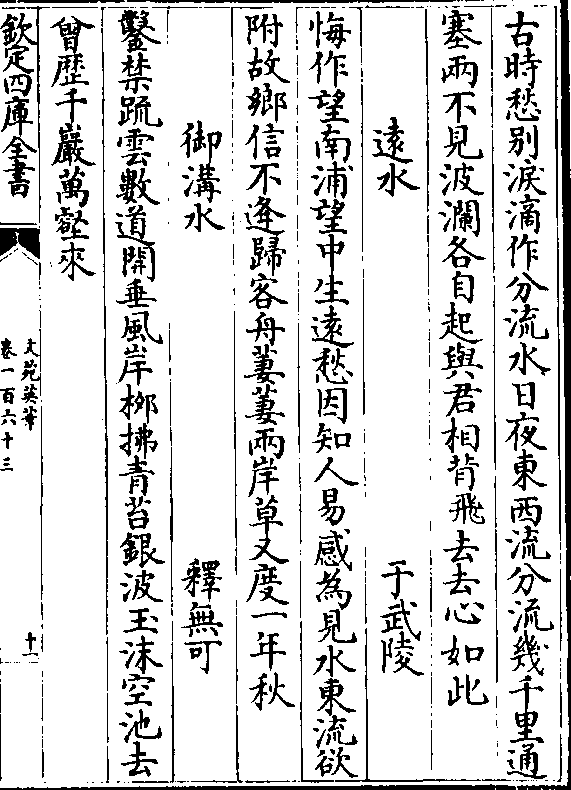 古時愁别淚滴作分流水日夜東西流分流幾千里通
塞兩不見波瀾各自起與君相背飛去去心如此
遠水 于武陵
悔作望南浦望中生遠愁因知人易感為見水東流欲
附故鄉信不逢歸客舟萋萋兩岸草又度一年秋
御溝水 釋無可
鑿禁疏雲數道開垂風岸栁拂青苔銀波玉沫空池去
曾歴千巖萬壑來
欽定四庫全書
文苑英華
卷一百六十三
十一